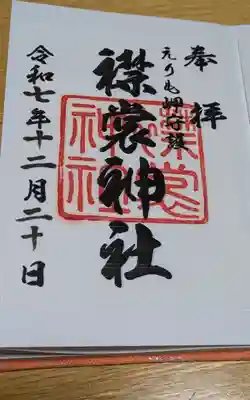 奉拝
えりも岬鎮護
襟裳神社
令和七年十二月二十日